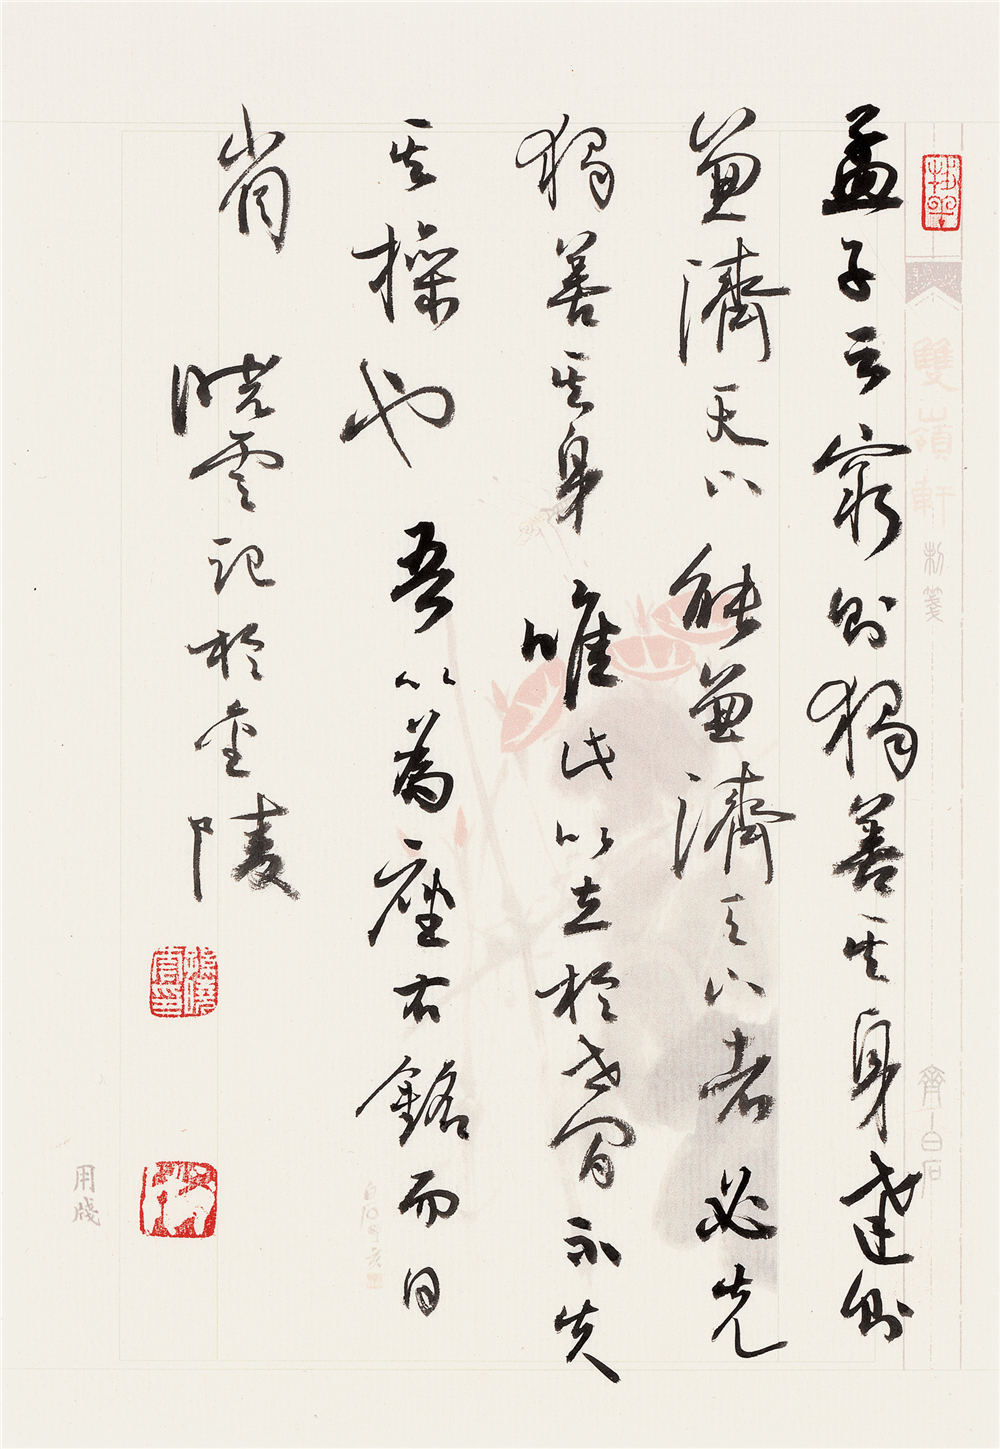 孟子云窮則獨善其身達則
兼濟天下能兼濟天下者必先
獨善其身唯此以立於世間不失
其操也吾以為座右銘而日
省
曉雲記於金陵
雙嶺軒制箋
齊白石
用牋